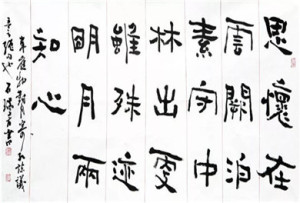 思懷在
雲闕泊
素守中
林出處
雖殊迹
明月兩
知心